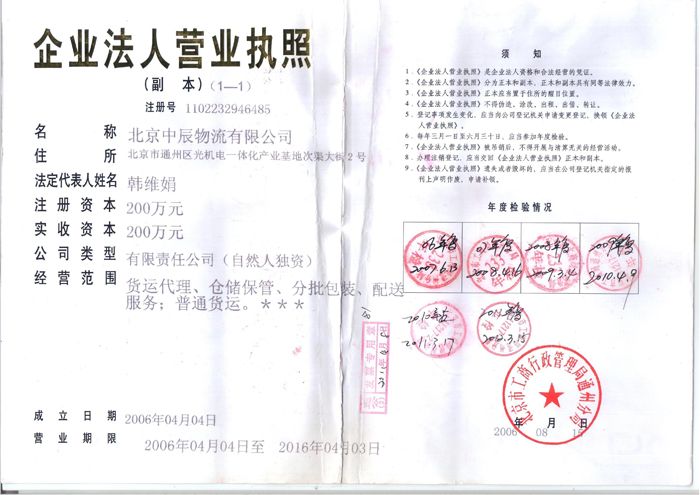 企业法人营业执照
(副 本) (1—1)
注册号 1102232946485
名 称 北京中辰物流有限公司
住 所 北京市通州区光机电一体化产业基地次渠大街2号
法定代表人姓名 韩维娟
注册资本 200万元
实收资本 200万元
公司类型 有限责任公司(自然人独资)
经营范围 货运代理、仓储保管、分批包装、配送
服务;普通货运。***
成立日期 2006年04月04日
营业期限 2006年04月04日至 2016年04月03日
须 知
1.《企业法人营业执照》是企业法人资格和合法经营的凭证。
2.《企业法人营业执照》分为正本和副本,正本和副本具有同等法律效力。
3.《企业法人营业执照》正本应当置于住所的醒目位置。
4.《企业法人营业执照》不得伪造、涂改、出租、出借、转让。
5.登记事项发生变化,应当向公司登记机关申请变更登记,换领《企业法
人营业执照》。
6.每年三月一日至六月三十日,应当参加年度检验。
7.《企业法人营业执照》被吊销后,不得开展与清算无关的经营活动。
8.办理注销登记,应当交回《企业法人营业执照》正本和副本。
9.《企业法人营业执照》遗失或者毁坏的,应当在公司登记机关指定的报
刊上声明作废,申请补领。
年度检验情况
06年度
2007.6.13
07年度
2008.4.16
2008年度
2009.3.4
2009年度
2010.4.9
2010年度
2011.3.17
2011年度
2012.3.15
发票专用章
北京市工商行政管理局通州分局
2006年08月15日